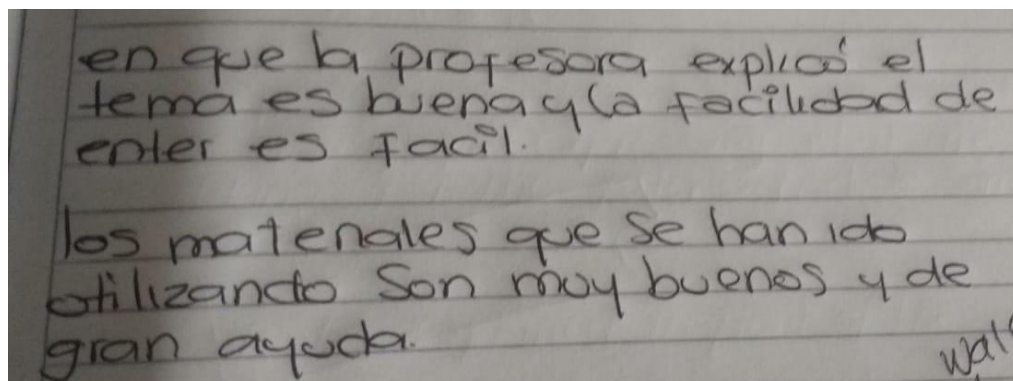 en que la profesora explicó el
tema es buena y la facilidad de
enter es facil.
los materiales que se han ido
utilizando son muy buenos y de
gran ayuda.